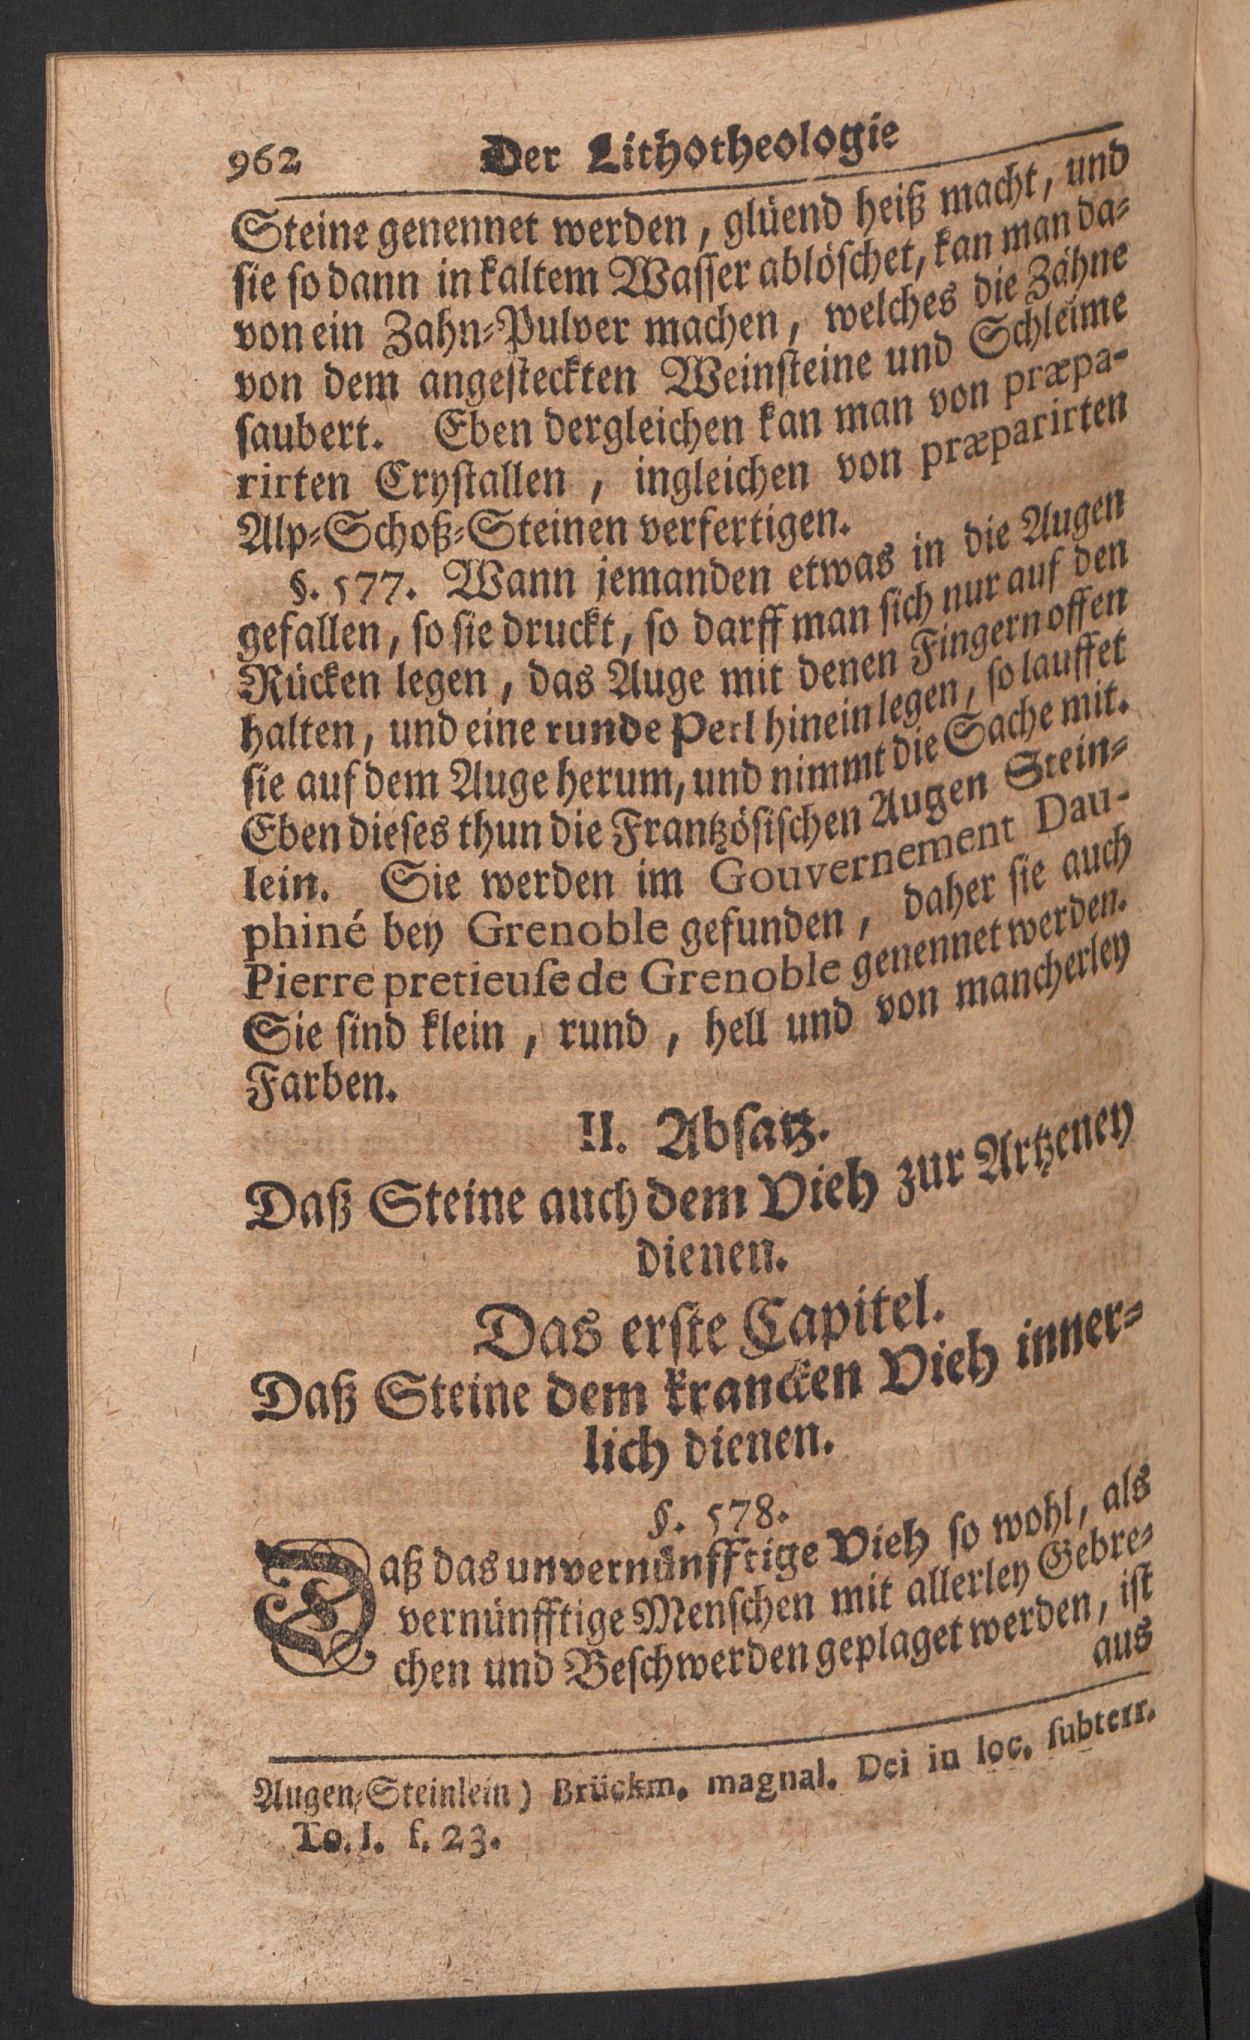 962 Der Lithotheologie
Steine genennet werden, glüend heiß macht, und
sie so dann in kaltem Wasser ablöschet, kan man da-
von ein Zahn-Pulver machen, welches die Zähne
von dem angesteckten Weinsteine und Schleime
saubert. Eben dergleichen kan man von præpa-
rirten Crystallen, ingleichen von præparirten
Alp-Schoß-Steinen verfertigen.
§. 577. Wann jemanden etwas in die Augen
gefallen, so sie druckt, so darff man sich nur auf den
Rücken legen, das Auge mit denen Fingern offen
halten, und eine runde Perl hinein legen, so lauffet
sie auf dem Auge herum, und nimmt die Sache mit.
Eben dieses thun die Frantzösischen Augen Stein-
lein. Sie werden im Gouvernement Dau-
phiné bey Grenoble gefunden, daher sie auch
Pierre pretieuse de Grenoble genennet werden.
Sie sind klein, rund, hell und von mancherley
Farben.
II. Absatz.
Daß Steine auch dem Vieh zur Artzeney
dienen.
Das erste Capitel.
Daß Steine dem krancken Vieh inner-
lich dienen.
§. 578.
Daß das unvernünfftige Vieh so wohl, als
vernünfftige Menschen mit allerley Gebre-
chen und Beschwerden geplaget werden, ist
aus
Augen-Steinlein) Brückm. magnal. Dei in loc. subterr.
To. I. f. 23.